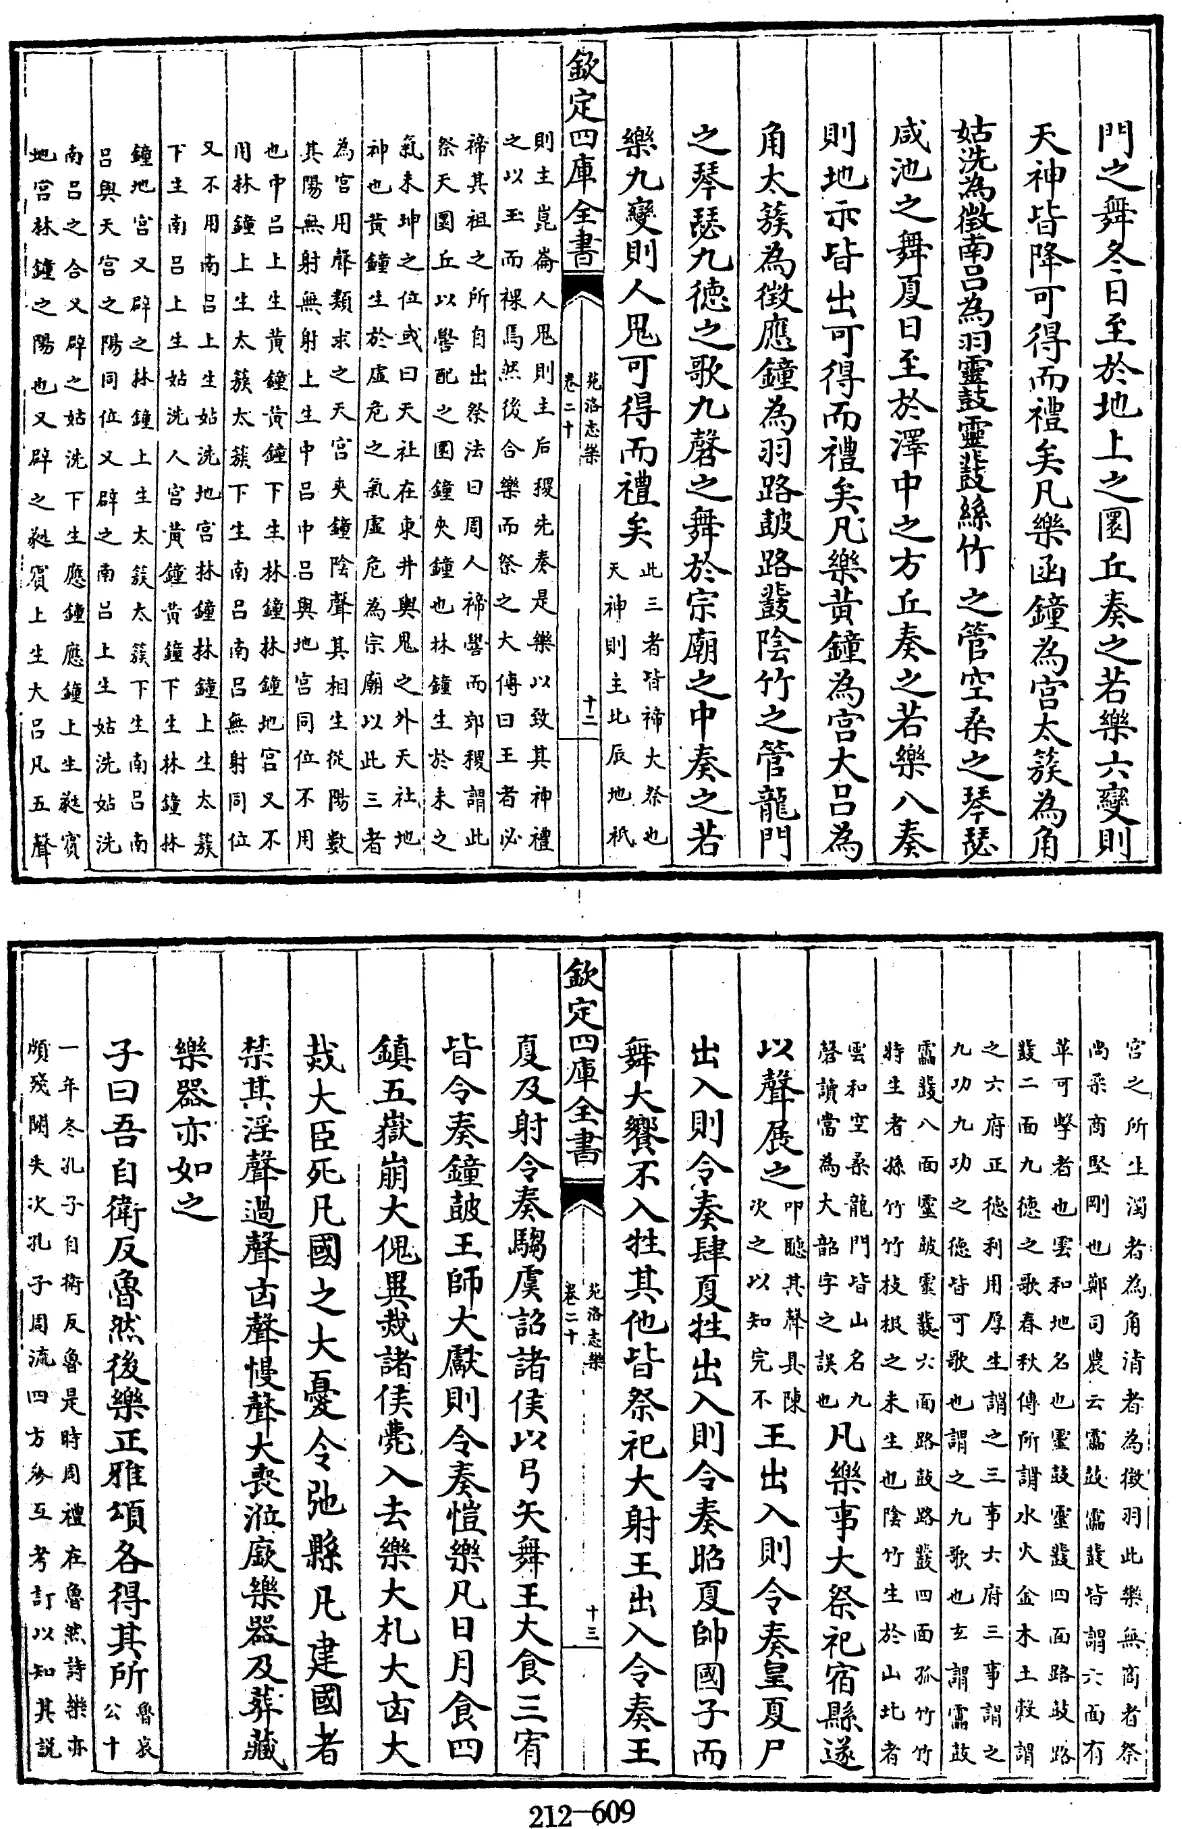 門之舞冬日至於地上之圜丘奏之若樂六變則
天神皆降可得而禮矣凡樂函鐘為宮太簇為角
姑洗為徵南呂為羽靈鼓靈鼗絲竹之管空桑之琴瑟
咸池之舞夏日至於澤中之方丘奏之若樂八奏
則地示皆出可得而禮矣凡樂黄鐘為宮大呂為
角太簇為徵應鐘為羽路鼓路鼗陰竹之管龍門
之琴瑟九德之歌九磬之舞於宗廟之中奏之若
樂九變則人鬼可得而禮矣此三者皆禘大祭也
天神則主北辰地祇
欽定四庫全書
苑洛志樂
卷二十
十二
則主崑崙人鬼則主后稷先奏是樂以致其神禮
之以玉而祼焉然後合樂而祭之大傳曰王者必
禘其祖之所自出祭法曰周人禘嚳而郊稷謂此
祭天圜丘以嚳配之圜鐘夾鐘也林鐘生於未之
氣未坤之位或曰天社在東井輿鬼之外天社地
神也黄鐘生於虚危之氣虚危為宗廟以此三者
為宮用聲類求之天宮夾鐘陰聲其相生從陽數
其陽無射無射上生中呂中呂與地宮同位不用
也中呂上生黄鐘黄鐘下生林鐘林鐘地宮又不
用林鐘上生太簇太簇下生南呂南呂無射同位
又不用南呂上生姑洗地宮林鐘林鐘上生太簇
下生南呂上生姑洗人宮黄鐘黄鐘下生林鐘林
鐘地宮又辟之林鐘上生太簇太簇下生南呂南
呂與天宮之陽同位又辟之南呂上生姑洗姑洗
南呂之合又辟之姑洗下生應鐘應鐘上生蕤賓
地宮林鐘之陽也又辟之蕤賓上生大呂凡五聲
宮之所生濁者為角清者為徵羽此樂無商者祭
尚柔商堅剛也鄭司農云靁鼓靁鼗皆謂六面有
革可擊者也雲和地名也靈鼓靈鼗四面路鼓路
鼗二面九德之歌春秋傳所謂水火金木土穀謂
之六府正德利用厚生謂之三事六府三事謂之
九功九功之德皆可歌也謂之九歌也玄謂靁鼓
靁鼗八面靈鼓靈鼗六面路鼓路鼗四面孤竹竹
特生者孫竹竹枝根之未生也陰竹生於山北者
雲和空桑龍門皆山名九
磬讀當為大韶字之誤也凡樂事大祭祀宿縣遂
以聲展之叩聽其聲具陳
次之以知完不王出入則令奏皇夏尸
出入則令奏肆夏牲出入則令奏昭夏帥國子而
舞大饗不入牲其他皆祭祀大射王出入令奏王
欽定四庫全書
苑洛志樂
卷二十
十三
夏及射令奏騶虞詔諸侯以弓矢舞王大食三宥
皆令奏鐘鼓王師大獻則令奏愷樂凡日月食四
鎮五嶽崩大傀異烖諸侯薨入去樂大札大凶大
烖大臣死凡國之大憂令弛縣凡建國者
禁其淫聲過聲凶聲慢聲大喪涖廞樂器及葬藏
樂器亦如之
子曰吾自衛反魯然後樂正雅頌各得其所魯哀
公十
一年冬孔子自衛反魯是時周禮在魯然詩樂亦
頗殘闕失次孔子周流四方參互考訂以知其說
212-609